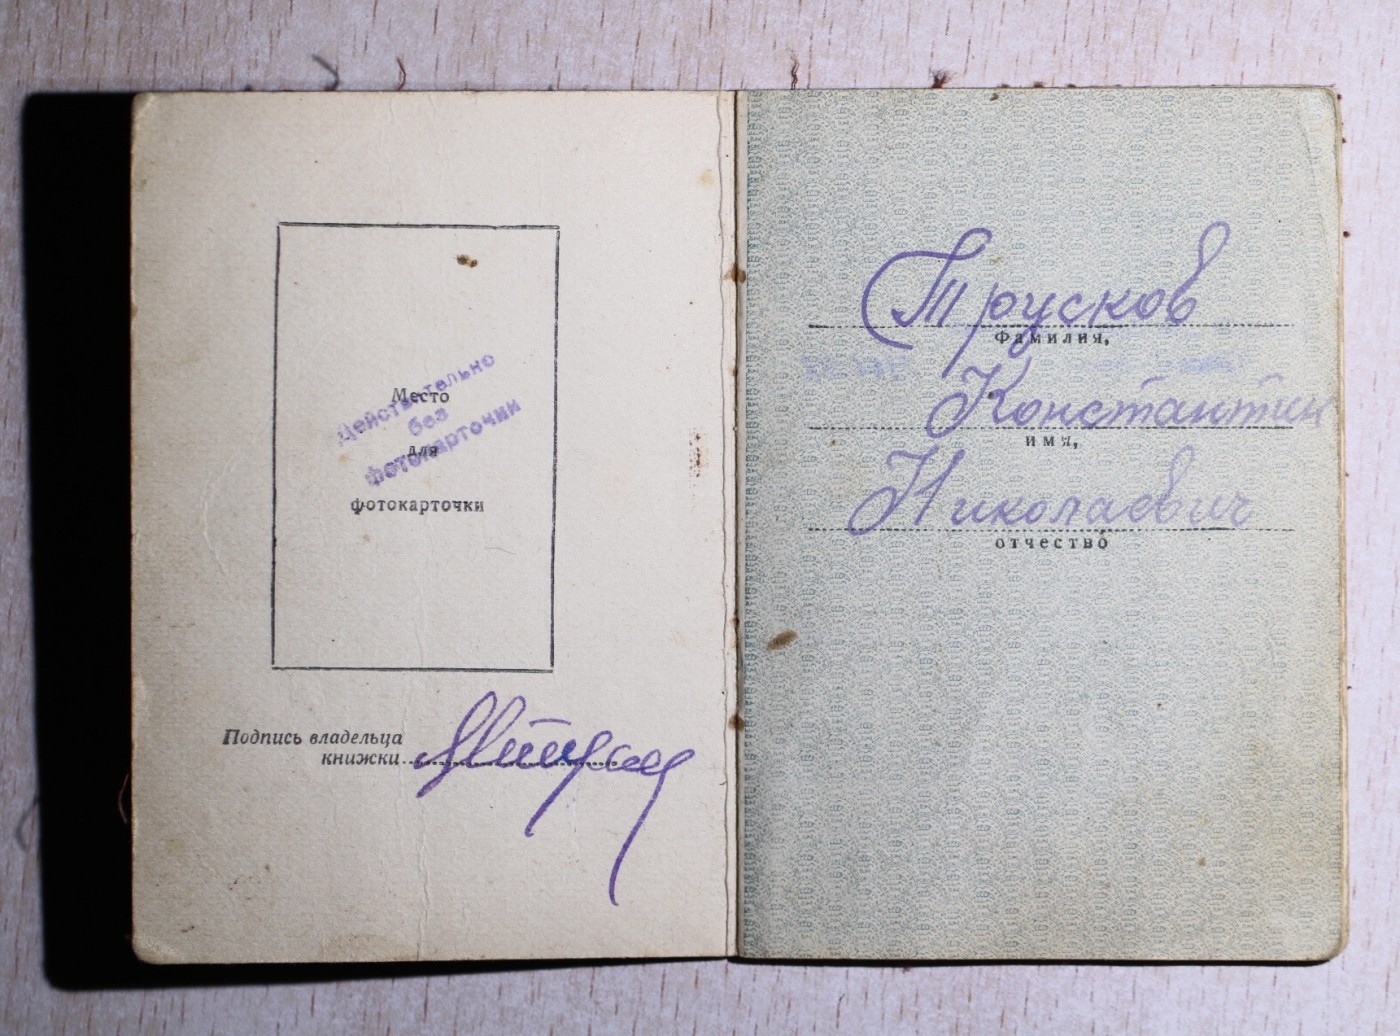 Место
для
фотокарточки
Действительно
без
фотокарточки
Подпись владельца
книжки
Трусков
Фамилия,
Константин
имя,
Николаевич
отчество